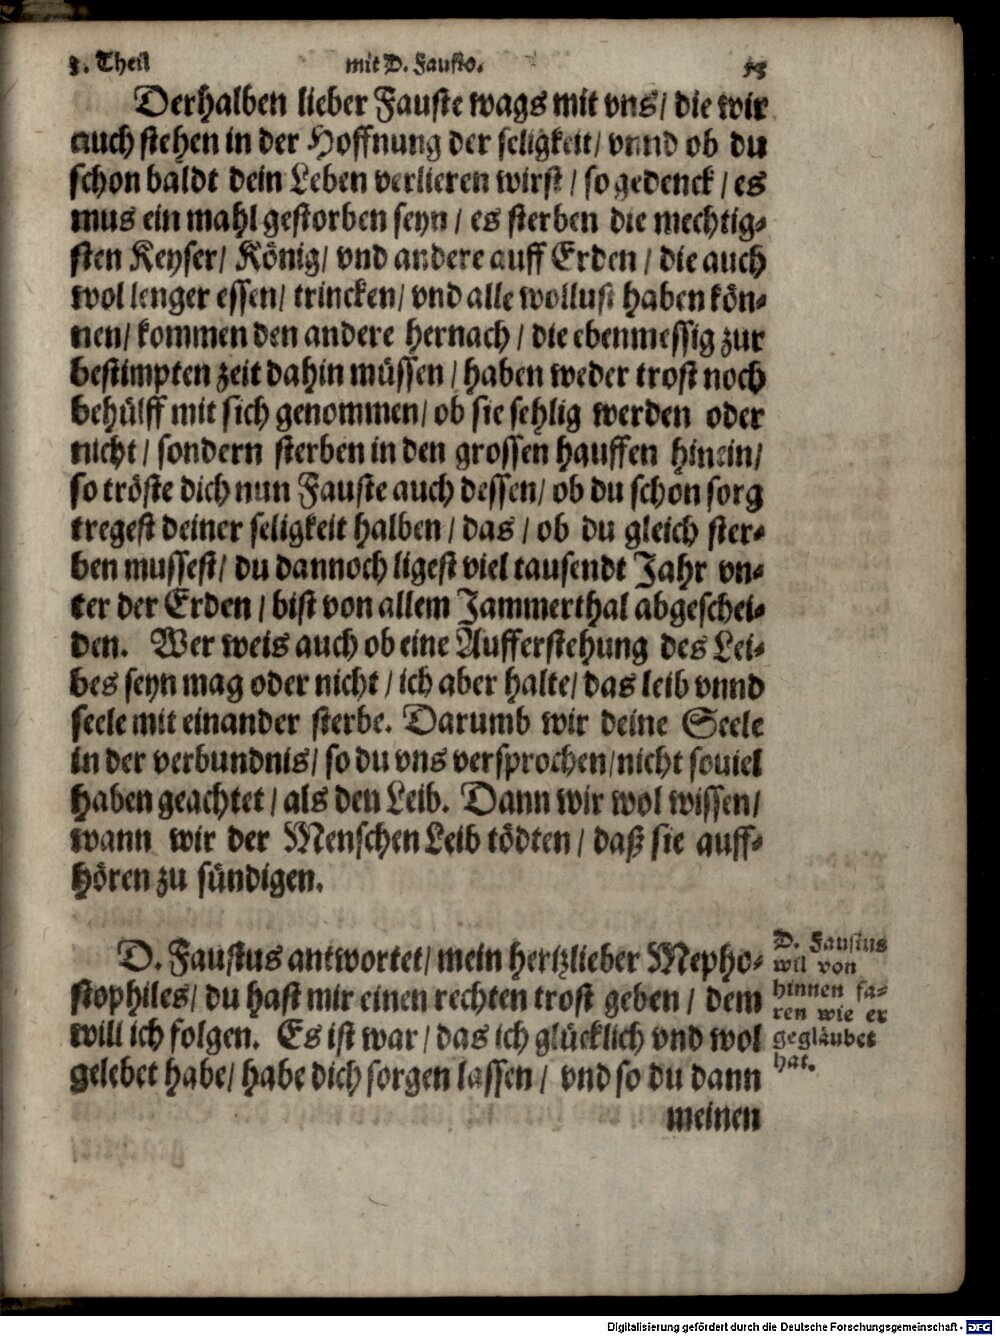 1. Theil mit D. Fausto. 53
Derhalben lieber Fauste wags mit vns / die wir
auch stehen in der Hoffnung der seligkeit / vnnd ob du
schon baldt dein Leben verlieren wirst / so gedenck / es
mus ein mahl gestorben seyn / es sterben die mechtig-
sten Keyser / König / vnd andere auff Erden / die auch
wol lenger essen / trincken / vnd alle wollust haben kön-
nen / kommen den andere hernach / die ebenmessig zur
bestimpten zeit dahin müssen / haben weder trost noch
behülff mit sich genommen / ob sie sehlig werden oder
nicht / sondern sterben in den grossen hauffen hinein /
so tröste dich nun Fauste auch dessen / ob du schon sorg
tregest deiner seligkeit halben / das / ob du gleich ster-
ben mussest / du dannoch ligest viel tausendt Jahr vn-
ter der Erden / bist von allem Jammerthal abgeschei-
den. Wer weis auch ob eine Aufferstehung des Lei-
bes seyn mag oder nicht / ich aber halte / das leib vnnd
seele mit einander sterbe. Darumb wir deine Seele
in der verbundnis / so du vns versprochen / nicht souiel
haben geachtet / als den Leib. Dann wir wol wissen /
wann wir der Menschen Leib tödten / daß sie auff-
hören zu sündigen.
D. Faustus antwortet / mein hertzlieber Mepho-
stophiles / du hast mir einen rechten trost geben / dem
will ich folgen. Es ist war / das ich glücklich vnd wol
gelebet habe / habe dich sorgen lassen / vnd so du dann
meinen
D. Faustus
wil von
hinnen fa-
ren wie er
gegläubet
hat.
Digitalisierung gefördert durch die Deutsche Forschungsgemeinschaft - DFG